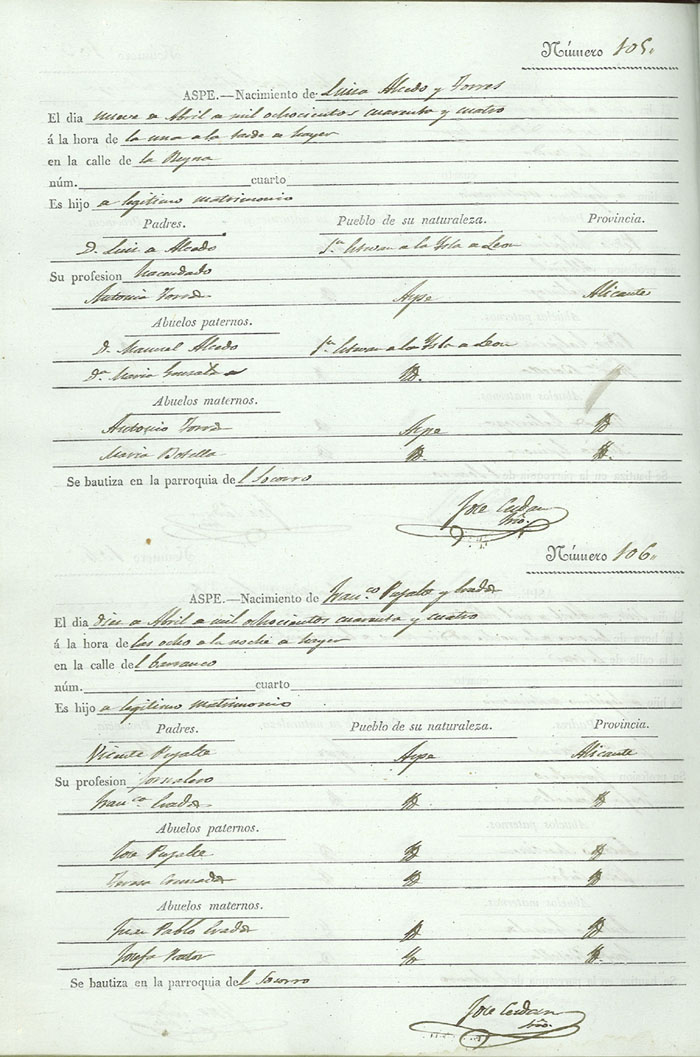 Número 105.
ASPE.—Nacimiento de Luisa Alcedo y Torres
El dia nueve de Abril de mil ochocientos cuarenta y cuatro
á la hora de la una de la tarde de hayer
en la calle de la Reyna
núm. cuarto
Es hijo de legitimo matrimonio
Padres. Pueblo de su naturaleza. Provincia.
D. Luis de Alcedo de la Ysla de Leon
Su profesion hacendado
Antonia Torres Aspe Alicante
Abuelos paternos.
D. Manuel Alcedo de la Ysla de Leon
Da. Maria
Abuelos maternos.
Antonio Torres Aspe
Maria Botella
Se bautiza en la parroquia del Socorro
Jose Cerdan
Srio.
Número 106.
ASPE.—Nacimiento de Franco. Pujalte y
El dia diez de Abril de mil ochocientos cuarenta y cuatro
á la hora de las ocho de la noche de hayer
en la calle del barranco
núm. cuarto
Es hijo de legitimo matrimonio
Padres. Pueblo de su naturaleza. Provincia.
Vicente Pujalte Aspe Alicante
Su profesion jornalero
Franca.
Abuelos paternos.
Jose Pujalte
Teresa
Abuelos maternos.
Juan Pablo
Josefa Pastor
Se bautiza en la parroquia del Socorro
Jose Cerdan
Srio.